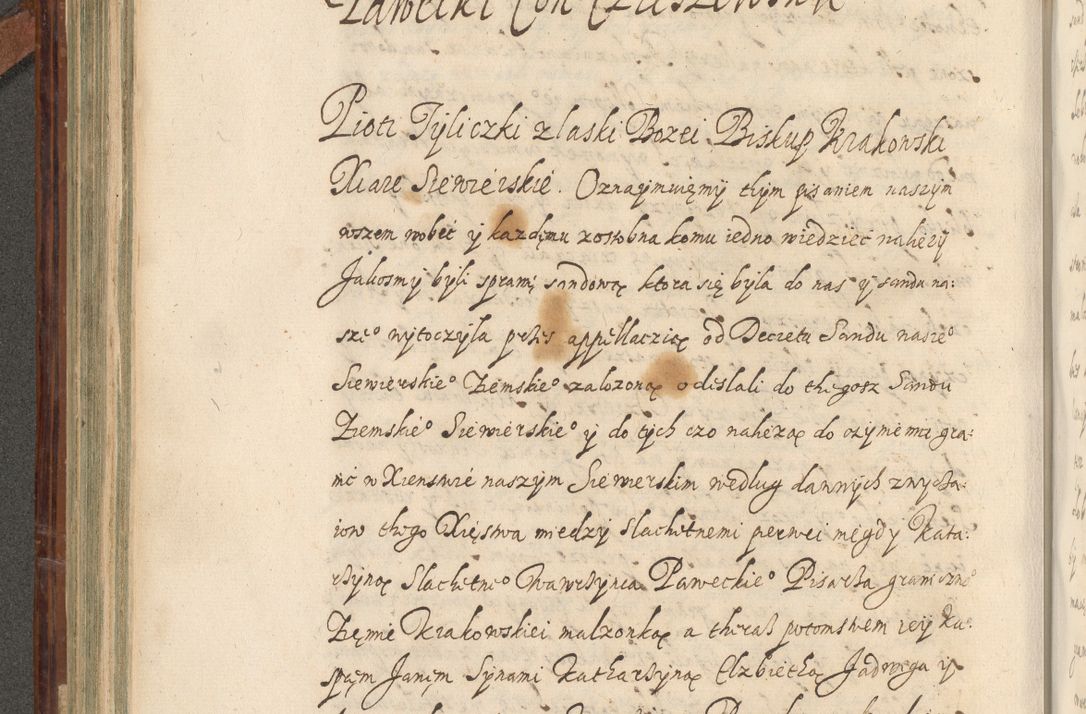 Piotr Tyliczki z laski Bozei Biskup Krakowski
Xiaze Siewierskie. Oznaymuięmy thym pisaniem naszym
wszem wobec y kazdęmu zosobna komu iedno wiedziec nalezy
Jakosmy byli sprawę sandową ktora się byla do nas y sandu na:
sze° wytoczyla przes appellaczią od Decretu Sandu nasze°
Siewierskie° Ziemskie° zalozoną odeslali do thegosz Sandu
Ziemskie° Siewierskie° y do tych czo nalezą do czynienia gra:
nic w Xienstwie naszym Siewierskim wedlug dawnych zwycza:
iow thego Xięstwa miedzy Slachetnemi perwei mięgdy Kata:
rzyną Slachetne° Wawrzynca Paweckie° Pisarza graniczne°
Ziemie Krakowskiei malzonką a theraz potomstwem ieiy Ka:
spąm Janęm Synami Katharzyną Elzbiethą Jadwigą y